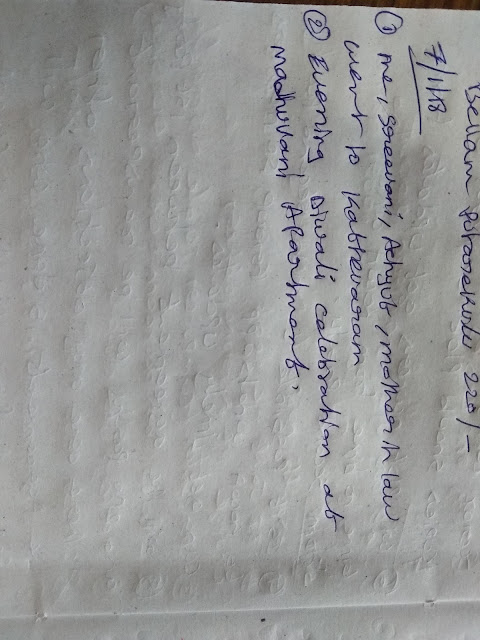 Bellam Putarekulu 220/-
7/11/18
① me, Sreevani, Achyut, mother in law
went to Kathevaram
② Evening Diwali calebration at
madhuvani Apartment.